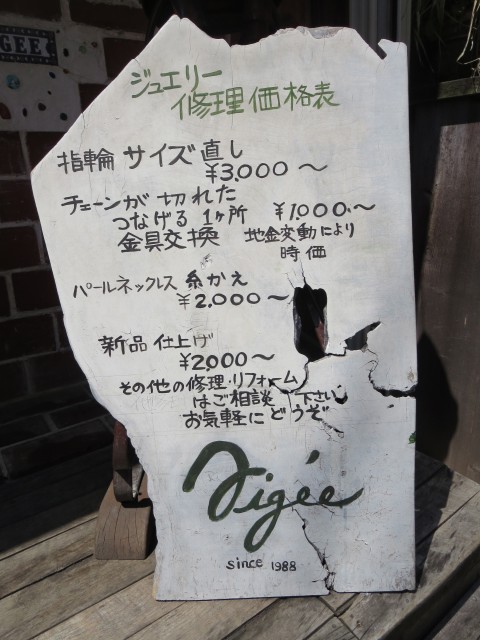 GEE
ジュエリー
修理価格表
指輪 サイズ直し
¥3,000～
チェーンが切れた
つなげる 1ヶ所 ¥1,000.～
金具交換 地金変動により
時価
パールネックレス 糸かえ
¥2,000～
新品仕上げ
¥2,000～
その他の修理・リフォーム
はご相談下さい
お気軽にどうぞ
Aigée
since 1988